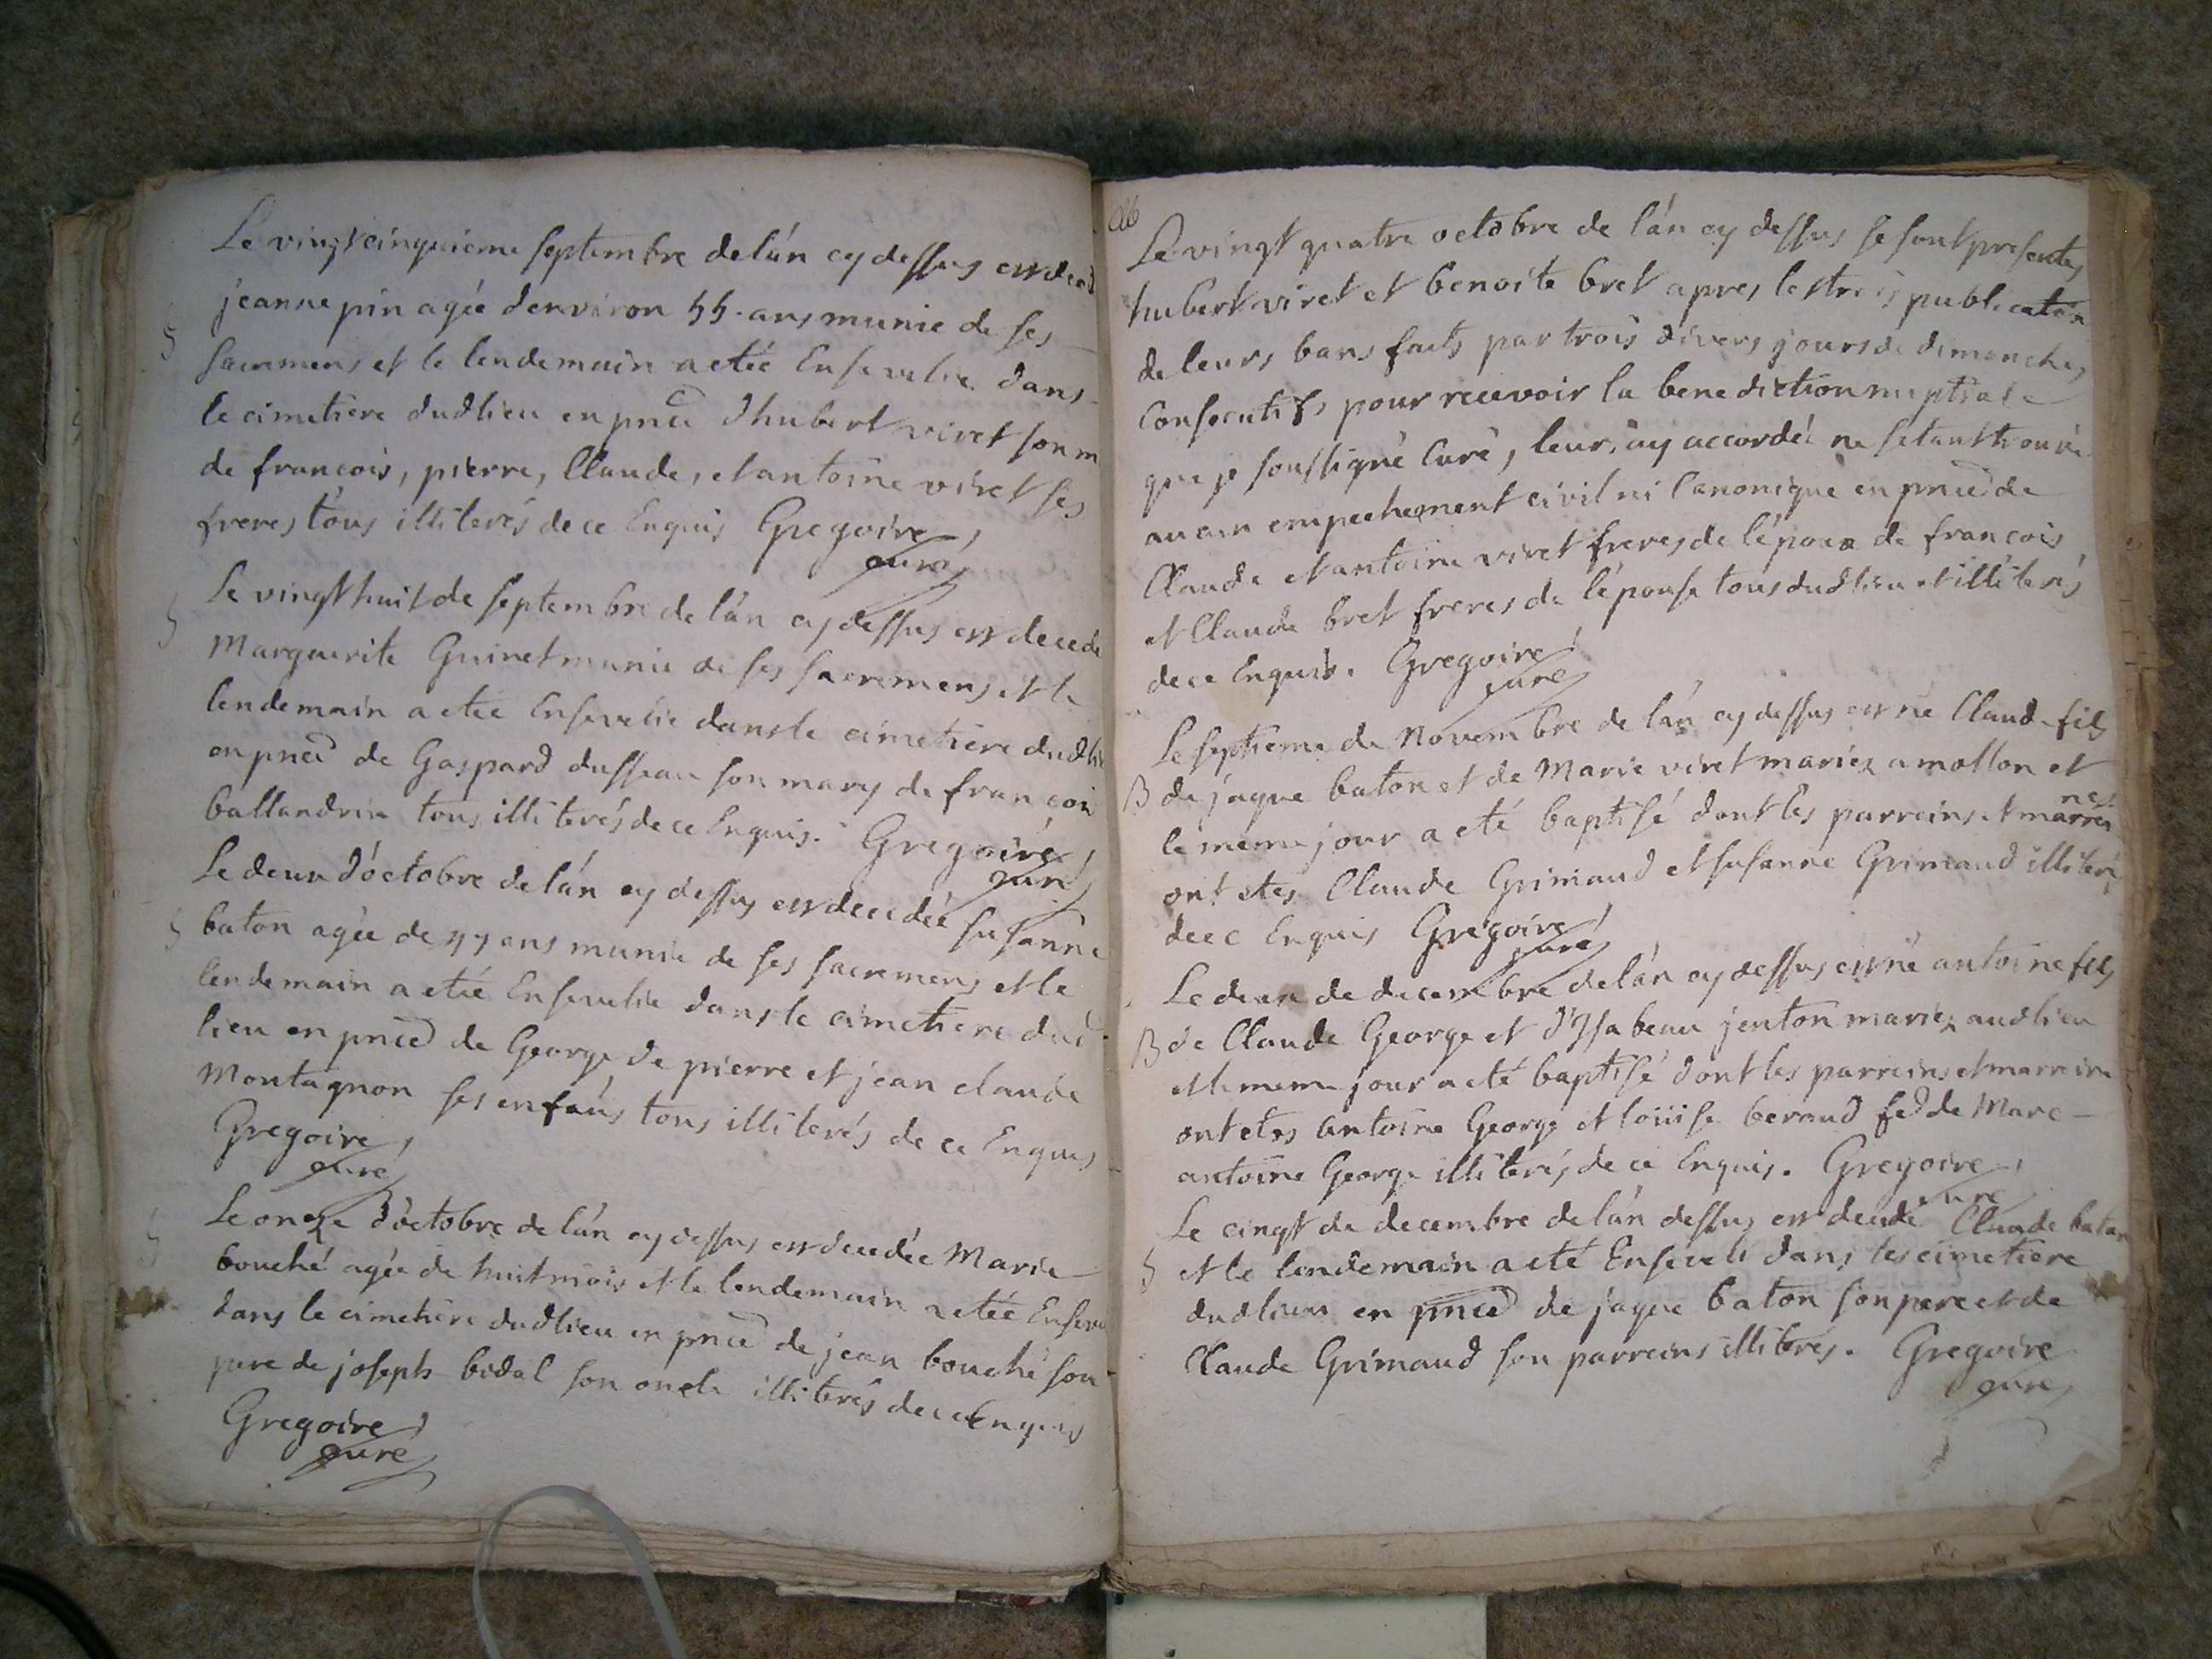 Le vingtcinquieme septembre de lán cy dessus est
jeanne pin agée denviron 55 ans munie de ses
sacremens et le lendemain a etée Ensevelie dans
le cimetiere dudlieu en pnce dhubert viret son m
de francois, pierre, Claude, et antoine viret ses
freres tous illiterés de ce Enquis Gregoire
curé
Le vingthuit de septembre de lán cy dessus est decedé
Marguerite Guinet munie de ses sacremens et le
lendemain a etée Ensevelie dans le cimetiere dudli
en pnce de Gaspard dusseau son mary de francois
ballandrin tous illiterés de ce Enquis. Gregoire
curé
Le deux d'octobre de lán cy dessus est decedée susanne
baton agée de ans munie de ses sacremens et le
lendemain a etée Ensevelie dans le cimetiere dud
lieu en pnce de George de pierre et jean claude
Montagnon ses enfans tous illiterés de ce Enquis
Gregoire
curé
Le onze d'octobre de lán cy dessus est decedée Marie
bouché agée de huit mois et le lendemain a etée Enseve
dans le cimetiere dudlieu en pnce de jean bouché son
pere de joseph bidal son oncle illiterés de ce Enquis
Gregoire
curé
Le vingt quatre octobre de lán cy dessus se sont presentes
hubert viret et benoite bret apres les trois publication
de leurs bans faits par trois divers jours de dimenches
Consecutifs pour recevoir la benediction nuptiale
que je soussigné Curé, leur, ay accordée ne setant trouvé
aucun empechement civil ni Canonique en pnce de
Claude et antoine viret freres de lépoux de francois
et Claude bret freres de lépouse tous dudlieu et illiterés
de ce Enquis. Gregoire
curé
Le septieme de Novembre de lán cy dessus est né Claude fils
B de jaque baton et de Marie viret mariez a mollon et
le meme jour a eté baptisé dont les parreins et marrei
nes
ont etes Claude Grimaud et susanne Grimaud illiterés
de ce Enquis Gregoire
curé
Le deux de decembre de lán cy dessus est né antoine fils
B de Claude George et d'Isabeau jenton mariez audlieu
et le meme jour a eté baptisé dont les parreins et marreine
ont etes antoine George et loüise beraud fe de Marc
antoine George illiterés de ce Enquis. Gregoire
curé
Le cinqt de decembre de lán dessus est decedé Claude baton
et le lendemain a eté Enseveli dans les cimetiere
dudlieu en pnce de jaque baton son pere et de
Claude Grimaud son parreins illiteres. Gregoire
curé